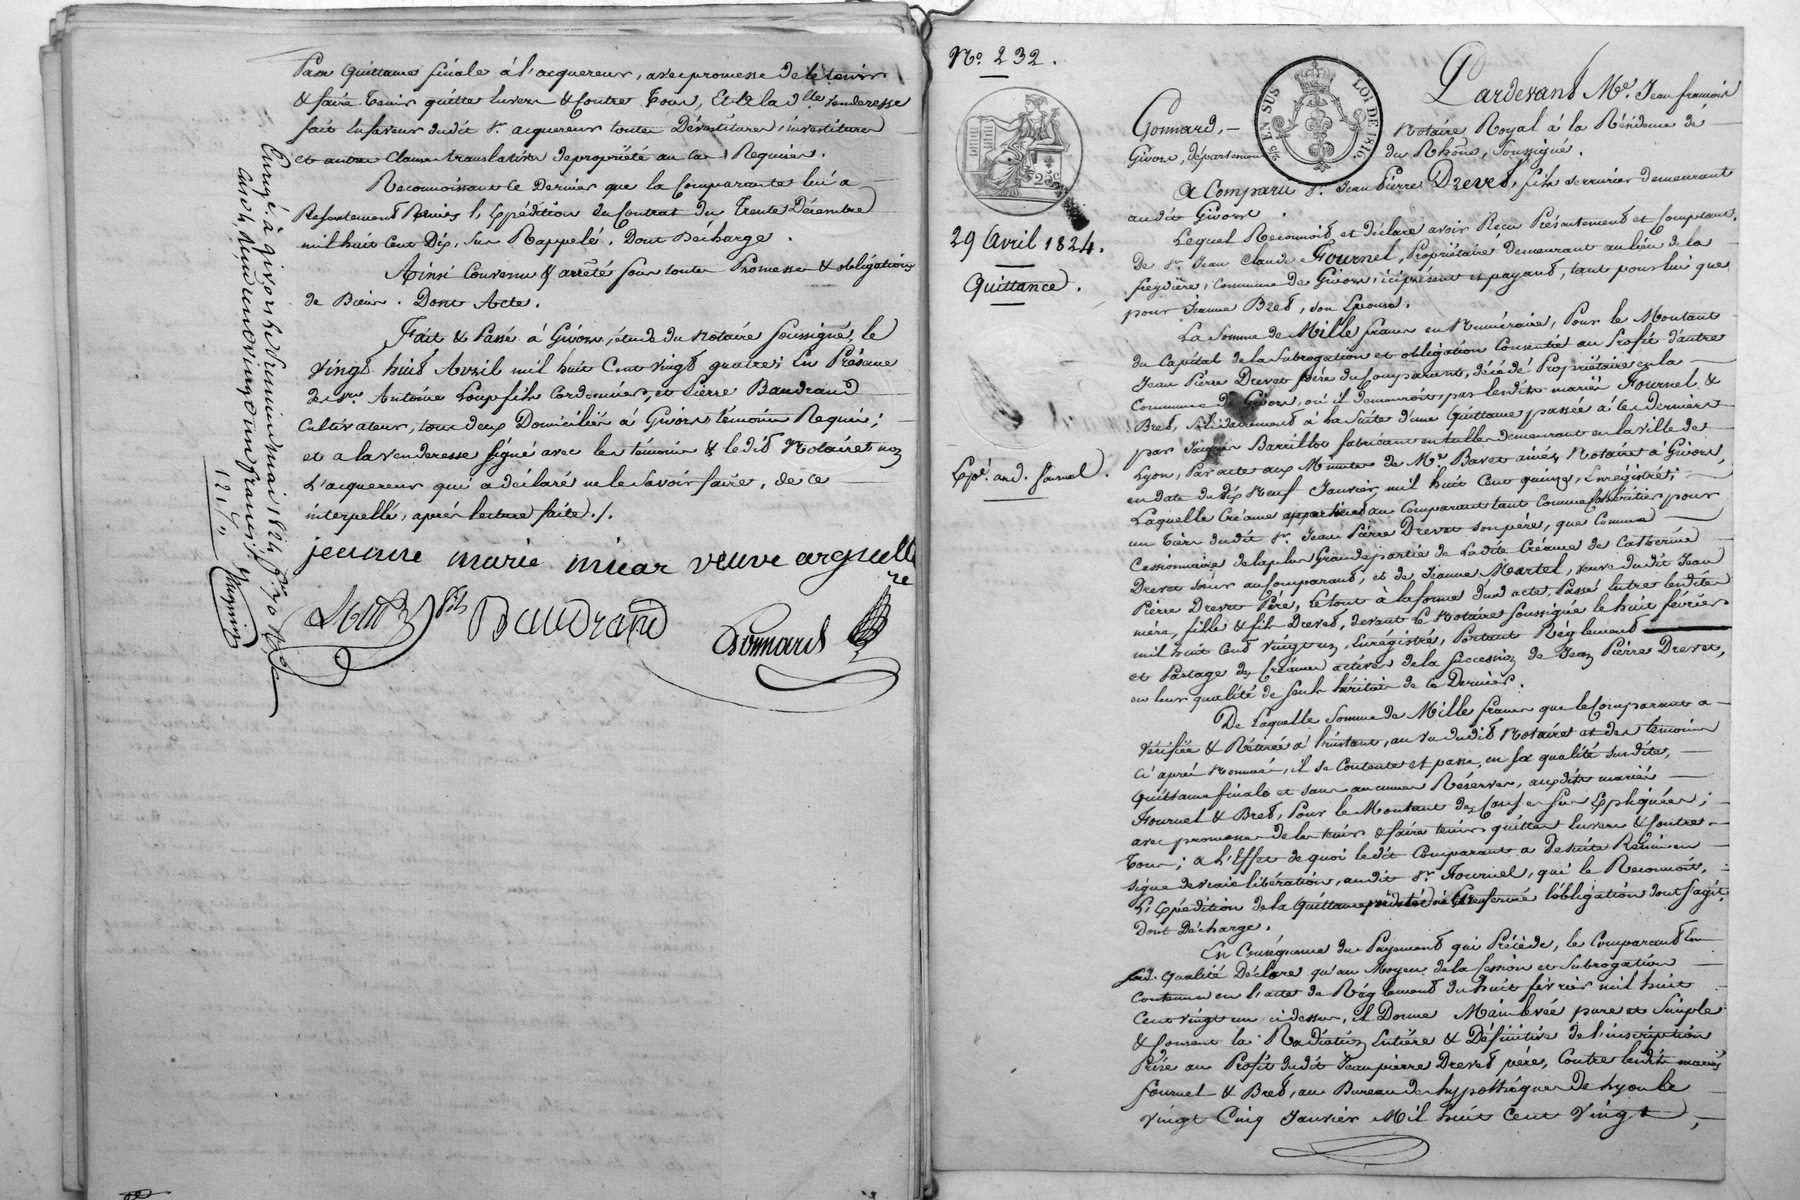 Passe Quittance finale à l'acquereur, avec promesse de le tenir
& faire tenir quitte envers & contre tous, Et de la dlle venderesse
fait en faveur dudit sr. acquereur toutes Dévestitures, investitures
et autres clauses translatives de propriété au cas Requises.
Reconnoissant ce Dernier que la Comparante lui a
Présentement Remis l'Expédition du Contrat du Trente Décembre
mil huit Cent Dix, sus Rappelé. Dont Décharge.
Ainsi Convenu & arrêté sous toutes Promesses & obligations
de Biens. Dont Acte.
Fait & Passé à Givors, étude du Notaire soussigné, le
vingt huit Avril mil huit Cent vingt quatre; En Présence
de srs. Antoine Loup fils Cordonnier, et Pierre Baudrand
Cultivateur, tous deux Domiciliés à Givors témoins Requis;
et a la venderesse signé avec les témoins & ledit Notaire & non
l'acquereur qui a déclaré ne le savoir faire, de ce
interpellé, après lecture faite./.
jeanne marie micar veuve
Loup fils Baudrand
Gonnard
Enregé à Givors le mai 1824, fo. 70
12 f.
No. 232.
29 Avril 1824.
Quittance.
Expé. aud. fournel.
25c EN SUS
LOI DE 1816.
Pardevant Me. Jean françois
Gonnard, Notaire Royal à la Résidence de
Givors, département du Rhône, soussigné.
A Comparu sr. Jean Pierre Drevet, fils serrurier demeurant
audit Givors
Lequel Reconnoit et déclare avoir Reçu Présentement et Comptant,
de sr. Jean Claude Fournel, Propriétaire demeurant au lieu de la
freydière, Commune de Givors, ici présent et payant, tant pour lui que
pour Jeanne Bret, son Epouse.
La somme de Mille francs en Numéraire, Pour le Montant
du Capital de la subrogation et obligation Consentie au Profit d'autre
Jean Pierre Drevet père du Comparant, décédé Propriétaire en la
Commune de Givors, où il demeuroit, par lesdits mariés Fournel &
Bret, solidairement à la suite d'une Quittance passée à ces derniers
par Jacques Barrillot fabricant en tulles demeurant en la ville de
Lyon, Par acte aux Minutes de Me. Bavet ainé, Notaire à Givors,
en date du dix Neuf Janvier mil huit Cent quinze, Enregistré;
Laquelle Créance appartient au Comparant tant comme héritier pour
un tiers dudit sr. Jean Pierre Drevet son père, que Comme
Cessionnaire de la plus Grande partie de ladite Créance de Catherine
Drevet sœur au Comparant, et de Jeanne Martel, veuve dudit Jean
Pierre Drevet Père, le tout à la forme d'un acte Passé entre lesdits
mère, fille & fils Drevet, devant le Notaire soussigné le huit février
mil huit Cent vingt un, Enregistré, Portant Règlement
et Partage des Créances actives de la succession de Jean Pierre Drevet,
en leur qualité de seuls héritiers de ce Dernier.
De Laquelle somme de Mille francs que le Comparant a
vérifiée & Retirée à l'instant, au vu dudit Notaire et des témoins
ci après Nommés, il se Contente et passe, en sa qualité susdite,
Quittance finale et sans aucunes Réserves, auxdits mariés
Fournel & Bret, Pour le Montant des Causes sus Expliquées;
avec promesse de les tenir & faire tenir quittes Envers & Contre
tous; à l'Effet de quoi ledit Comparant a de suite Remis en
signe de vraie libération, audit sr. Fournel, qui le Reconnoit,
L'Expédition de la Quittance Renfermé l'obligation dont s'agit.
Dont Décharge.
En Conséquence du Payement qui Précède, le Comparant En
sad. Qualité Déclare qu'au Moyen de la Cession et subrogation
Contenue en l'acte de Règlement du huit février mil huit
Cent vingt un cidessus, il Donne Mainlevée pure et Simple
& Consent la Radiation Entière & Définitive de l'inscription
Prise au Profit dudit Jean pierre Drevet père, Contre lesdits mariés
Fournel & Bret, au Bureau des hypothèques de Lyon le
vingt Cinq Janvier Mil huit Cent vingt,